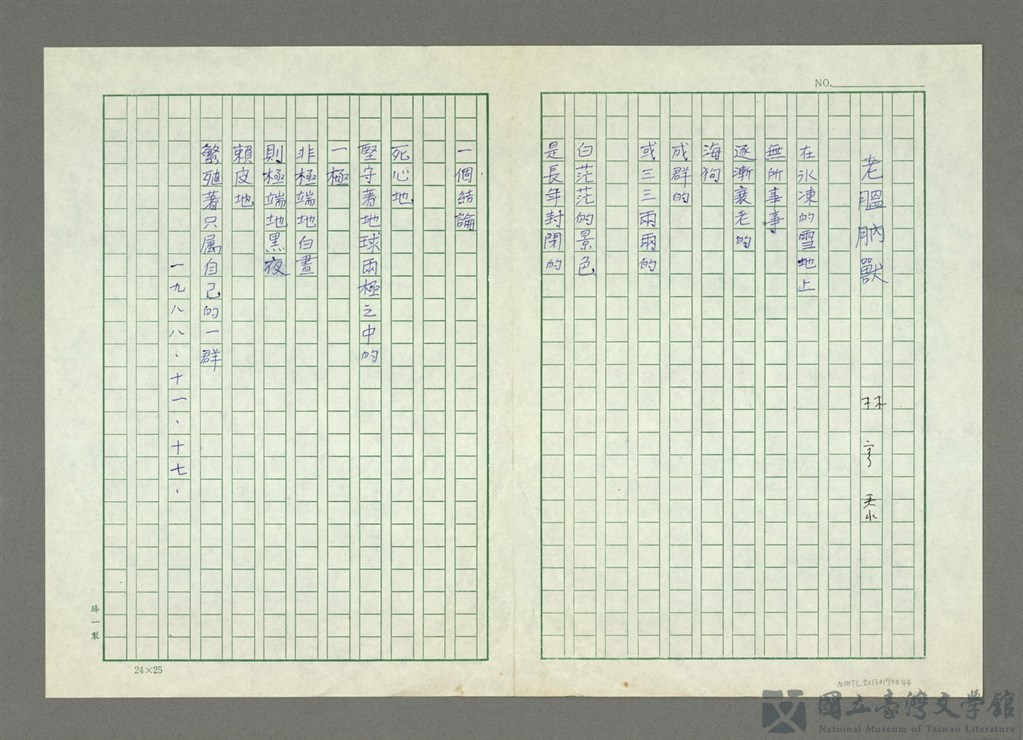 NO.
老膃肭獸
林亨泰
在冰凍的雪地上
無所事事
逐漸衰老的
海狗
成群的
或三三兩兩的
白茫茫的景色
是長年封閉的
一個結論
死心地
堅守著地球兩極之中的
一極
非極端地白晝
則極端地黑夜
賴皮地
繁殖著只屬自己的一群
一九八八．十一．十七．
勝一製
24×25
國立臺灣文學館
National Museum of Taiwan Literature